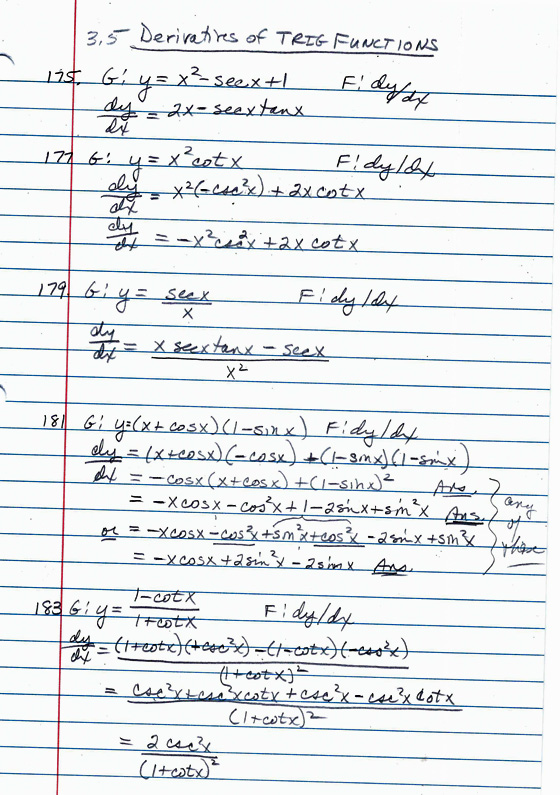 3.5 Derivatives of TRIG FUNCTIONS
175. G: y = x² - sec x + 1 F: dy/dx
dy/dx = 2x - secx tanx
177 G: y = x² cot x F: dy/dx
dy/dx = x²(-csc²x) + 2x cot x
dy/dx = -x² csc²x + 2x cot x
179 G: y = secx/x F: dy/dx
dy/dx = (x secx tanx - secx)/x²
181 G: y = (x + cosx)(1 - sinx) F: dy/dx
dy/dx = (x + cosx)(-cosx) + (1-sinx)(1-sinx)
= -cosx(x + cosx) + (1-sinx)² Ans.
= -xcosx - cos²x + 1 - 2sinx + sin²x Ans. any of these
or = -xcosx - cos²x + sin²x + cos²x - 2sinx + sin²x
= -xcosx + 2sin²x - 2sinx Ans.
183 G: y = (1-cotx)/(1+cotx) F: dy/dx
dy/dx = ((1+cotx)(+csc²x) - (1-cotx)(-csc²x))/(1+cotx)²
= (csc²x + csc²x cotx + csc²x - csc²x cotx)/(1+cotx)²
= 2 csc²x/(1+cotx)²